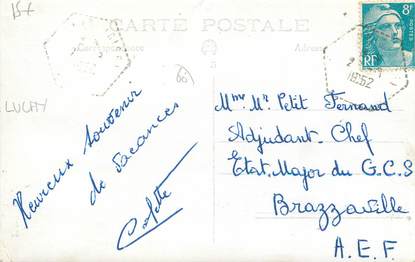 15+
CARTE POSTALE
Correspondance
Adresse
8F
POSTES
RF
1952
LUCHY
Heureux souvenir
de vacances
Colette
Mme Mr Petit Fernand
Adjudant-Chef
Etat. Major du G.C.S
Brazzaville
A.E.F.